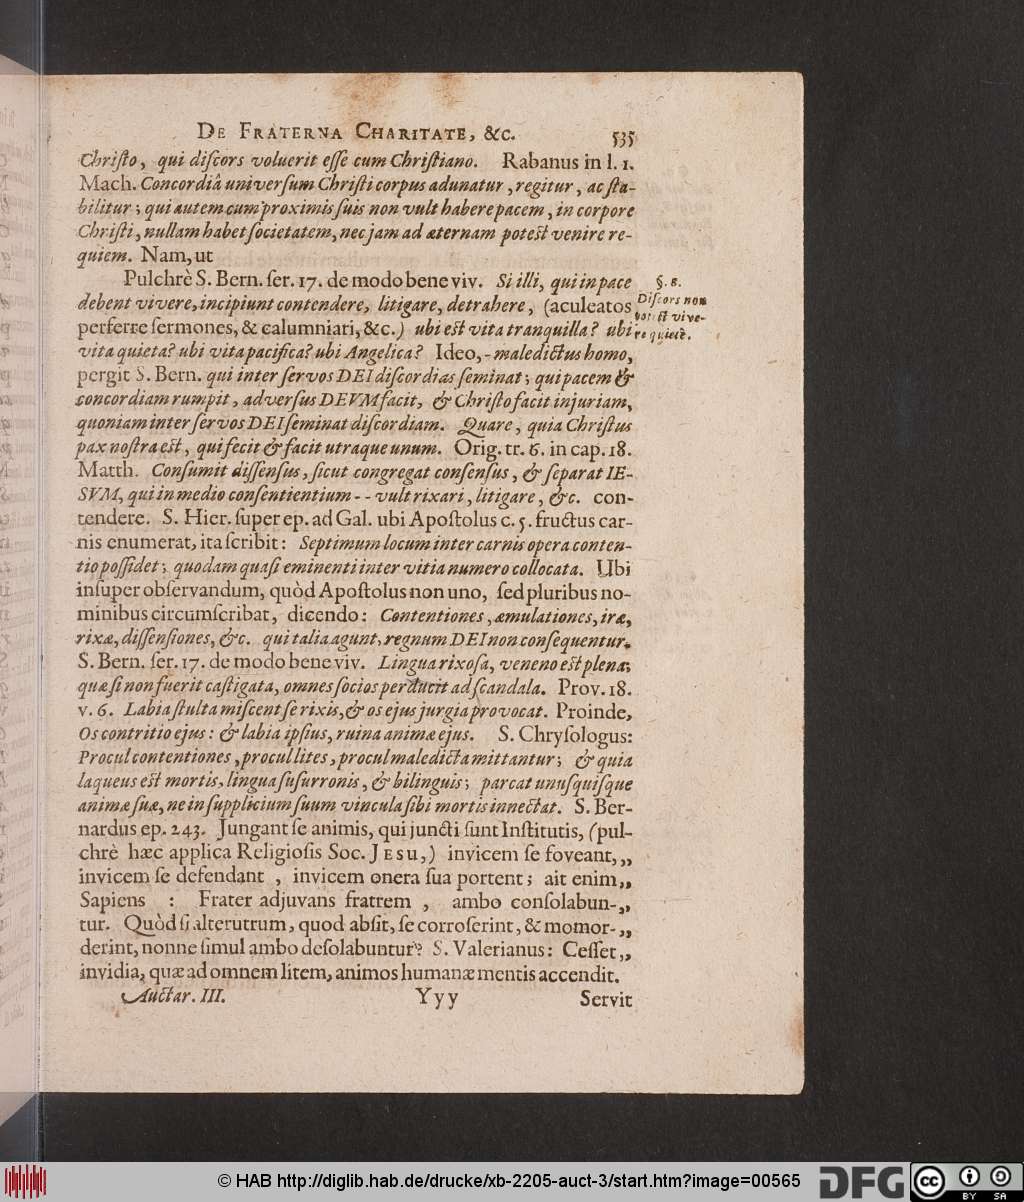 DE FRATERNA CHARITATE, &c. 535
Chriſto, qui diſcors voluerit eſſe cum Chriſtiano. Rabanus in l. 1.
Mach. Concordiâ univerſum Chriſti corpus adunatur, regitur, ac ſta-
bilitur; qui autem cum proximis ſuis non vult habere pacem, in corpore
Chriſti, nullam habet ſocietatem, nec jam ad æternam poteſt venire re-
quiem. Nam, ut
Pulchrè S. Bern. ſer. 17. de modo bene viv. Si illi, qui in pace
§. 8.
debent vivere, incipiunt contendere, litigare, detrahere, (aculeatos
Diſcors non
perferre ſermones, & calumniari, &c.) ubi eſt vita tranquilla? ubi
poteſt vive-
re quietè.
vita quieta? ubi vita pacifica? ubi Angelica? Ideo, - maledictus homo,
pergit S. Bern. qui inter ſervos DEI diſcordias ſeminat; qui pacem &
concordiam rumpit, adverſus DEVM facit, & Chriſto facit injuriam,
quoniam inter ſervos DEI ſeminat diſcordiam. Quare, quia Chriſtus
pax noſtra eſt, qui fecit & facit utraque unum. Orig. tr. 6. in cap. 18.
Matth. Conſumit diſſenſus, ſicut congregat conſenſus, & ſeparat IE-
SVM, qui in medio conſentientium - - vult rixari, litigare, &c. con-
tendere. S. Hier. ſuper ep. ad Gal. ubi Apoſtolus c. 5. fructus car-
nis enumerat, ita ſcribit: Septimum locum inter carnis opera conten-
tio poſſidet; quodam quaſi eminenti inter vitia numero collocata. Ubi
inſuper obſervandum, quòd Apoſtolus non uno, ſed pluribus no-
minibus circumſcribat, dicendo: Contentiones, æmulationes, iræ,
rixæ, diſſenſiones, &c. qui talia agunt, regnum DEI non conſequentur.
S. Bern. ſer. 17. de modo bene viv. Lingua rixoſa, veneno eſt plena;
quæ ſi non fuerit caſtigata, omnes ſocios perducit ad ſcandala. Prov. 18.
v. 6. Labia ſtulta miſcent ſe rixis, & os ejus jurgia provocat. Proinde,
Os contritio ejus: & labia ipſius, ruina animæ ejus. S. Chryſologus:
Procul contentiones, procul lites, procul maledicta mittantur; & quia
laqueus eſt mortis, lingua ſuſurronis, & bilinguis; parcat unuſquiſque
animæ ſuæ, ne in ſupplicium ſuum vincula ſibi mortis innectat. S. Ber-
nardus ep. 243. Jungant ſe animis, qui juncti ſunt Inſtitutis, (pul-
chrè hæc applica Religioſis Soc. JESU,) invicem ſe foveant, „
invicem ſe defendant , invicem onera ſua portent; ait enim „
Sapiens : Frater adjuvans fratrem , ambo conſolabun- „
tur. Quòd ſi alterutrum, quod abſit, ſe corroſerint, & momor- „
derint, nonne ſimul ambo deſolabuntur? S. Valerianus: Ceſſet „
invidia, quæ ad omnem litem, animos humanæ mentis accendit.
Auctar. III. Yyy Servit
© HAB http://diglib.hab.de/drucke/xb-2205-auct-3/start.htm?image=00565
DFG
cc BY SA